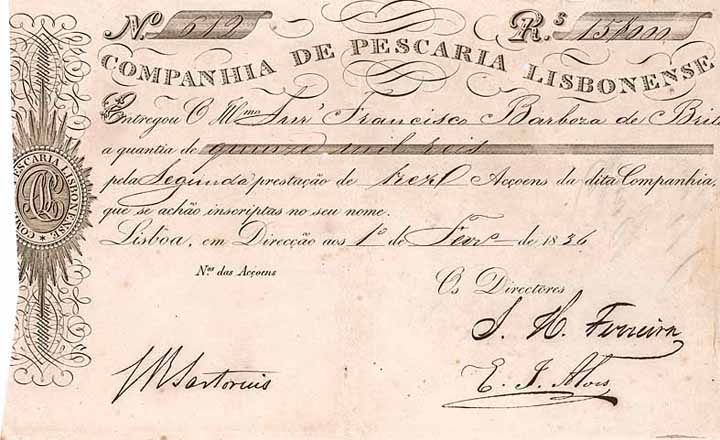 N.º 612 R.s 15$000
COMPANHIA DE PESCARIA LISBONENSE
Entregou O Illmo Snr' Francisco Barboza de Brit
a quantia de quinze mil reis
pela Segunda prestação de Acçoens da dita Companhia,
que se achão inscriptas no seu nome.
Lisboa, em Direcção aos 1º de Fevro de 1836
COMP. PESCARIA LISBONENSE
Nos das Acçoens
Os Directores
S. H. Ferreira
J R Sartorius
E. J. Alves